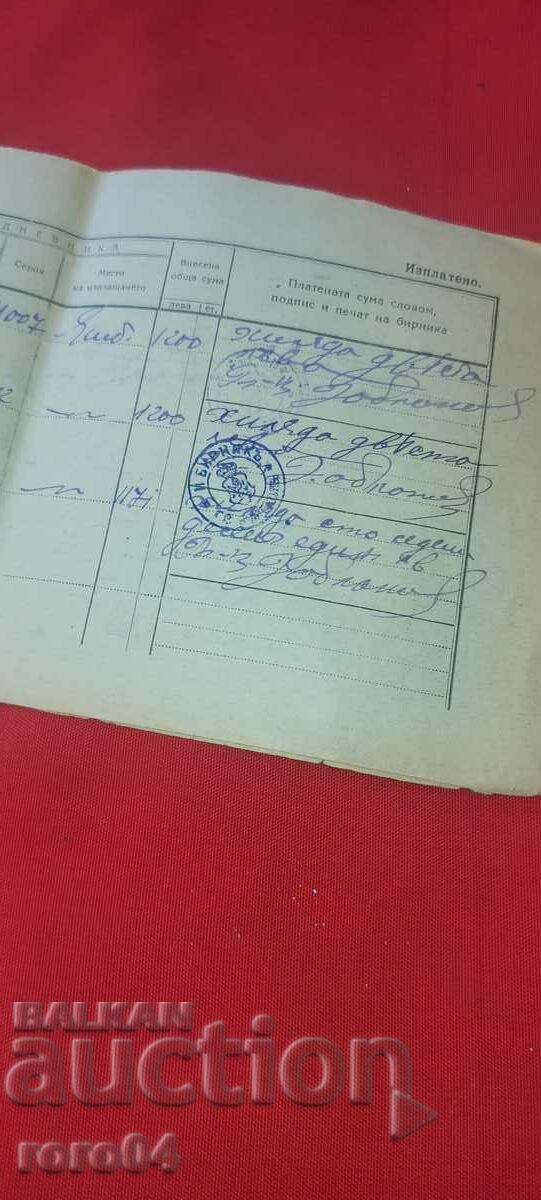 ДНЕВНИКА
Изплатено.
Серия
Место
на изплащането
Внесена
обща сума
лева ст.
Платената сума словом,
подпис и печат на бирника
1007 Ямб. 1200 хиляда двеста
лева
1200 хиляда двеста
БИРНИКЪ
1171 сто седем
десет един лв
BALKAN
auction
roro04